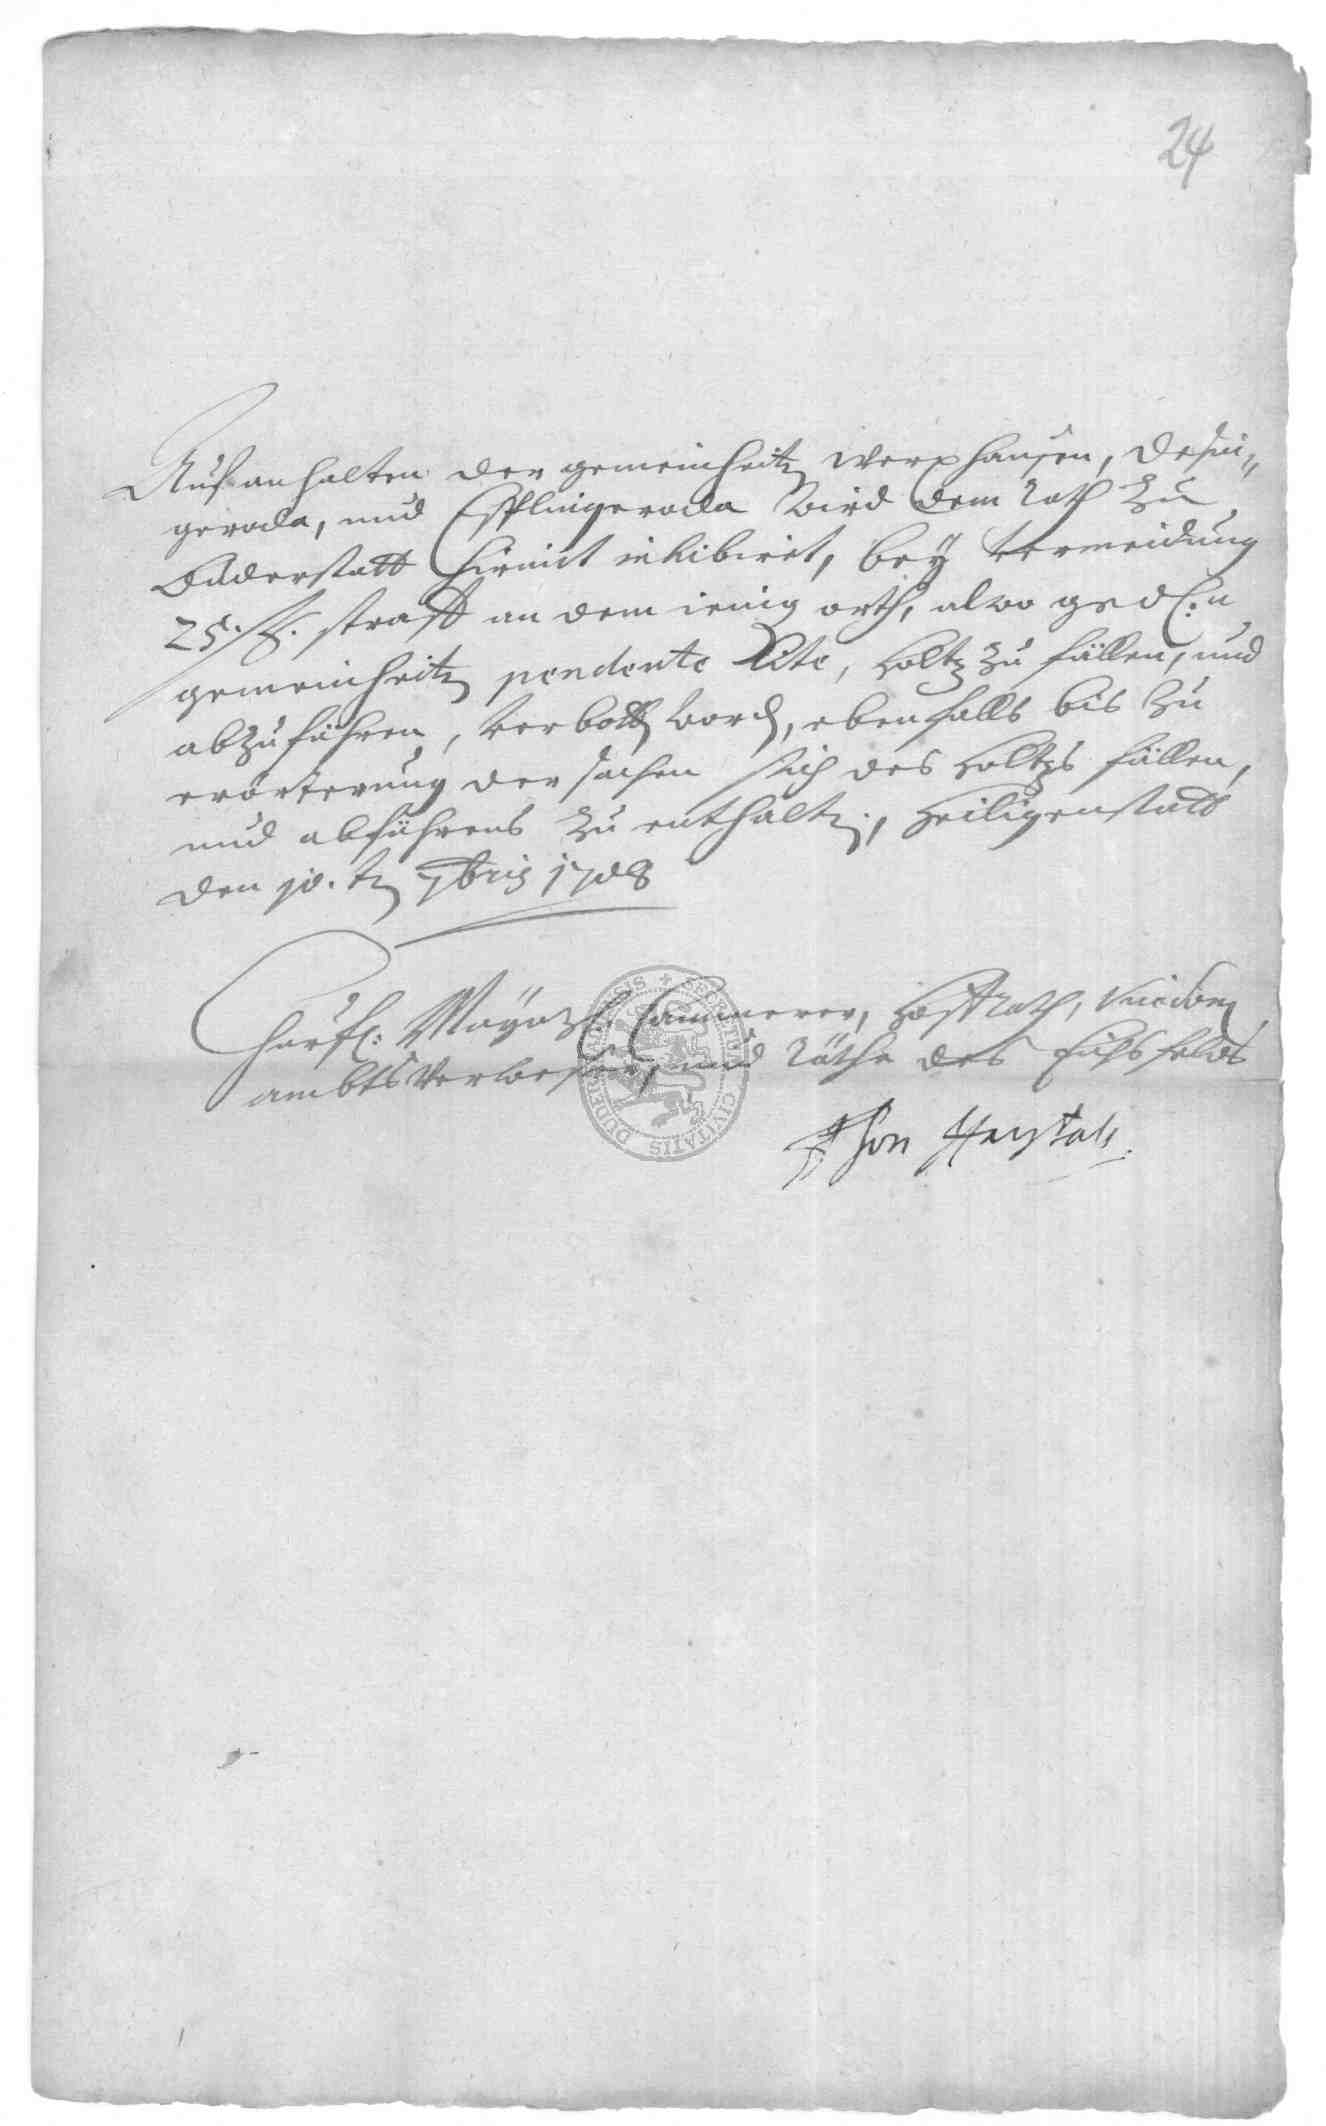 24
Auf anhalten der gemeinheitn Werxhausen, Desin=
geroda, und Esplingeroda wird dem Rath zu
Duderstatt hiemit inhibiret, bey vermeidung
25. straff an dem ienig orth, alwo
gemeinheitn pendente Lite, holtz zu fällen, und
abzuführen, verbotten worden, ebenfalls bis zu
erörterung der sachen sich des holtzs fällen,
und abführens zu enthalten, Heiligenstatt
den 10. tn 7bris 1708
Churfl: Maynzl. Cammerer, Hoffrath, Vicedom
ambts Verweser, und Räthe des Eichsfelds
SECRETUM CIVITATIS DUDERSTADENSIS